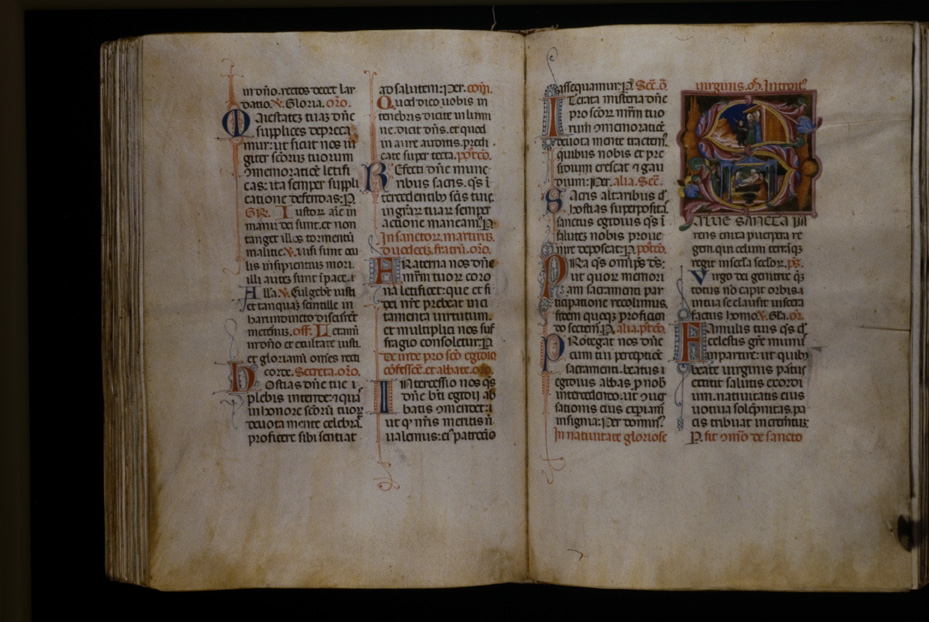 in dño. rectos decet lau
datio. V. Gloria. oro.
Maiestatē tuaz dñe
supplices depreca
mur: ut sicut nos iu
giter scōrū tuorum
ɔmemoratiōe letifi
cas: ita semper suppli
catione defendas: P.
GR. Iustorū aīe in
manu dei sunt. et non
tanget illos tormentū
malitie. V. uisi sunt ocu
lis insipientius mori.
illi autez sunt ī pace. i
Alla. V. Fulgebūt iusti
et tanquaz scintille in
harundineto discurrēt
ineternus. Off. Letamī
in dño et exultate iusti.
et gloriamī omēs recti
corde. Secreta. oro.
Hostias dñe tue
plebis intende: ⁊ quas
in honore scōrū tuorū
deuota mente celebrat
proficere sibi sentiat
ad salutem: Per. com̄.
Quod dico uobis in
tenebris dicite in lumi
ne. dicit dñs. et quod
in aure auditis. predi
cate super tecta. postco.
Refecti dñe mune
ribus sacris. qs
intercedentibȝ scīs tuis.
in grāruz tuaruz semper
actione maneam̄. P.
In sanctorū martirū.
ducelecti. fratrū. oro.
Fraterna nos dñe
mr̄m tuor coro
na letificet: que et fi
dei nr̄e prebeat inci
tamenta uirtutum.
et multiplici nos suf
fragio consoletur. P.
De inde pro scō egidio
cōfessor̄. et abbate. oro
Intercessio nos qs
dñe bt̄i egidii ab
batis ɔmendet:
ut qd̄ nr̄is meritis nō
ualemus: ei patrocio
assequamur: P. Sec̄. ō.
Iterata misteria dñe
pro scōrum mr̄m tuo
rum ɔmemoratiōe
deuota mente tractem̄.
quibus nobis et pre
sidium crescat ⁊ gau
dium: Per. alia. Sec̄.
Sacris altaribus
hostias superpositas
sanctus egidius qs
salutē nobis proue
nire deposcat: P. postco.
Presta qs omps ds:
ut quorū memori
am sacramenti par
ticipatione recolimus.
fidem quoqȝ proficien
do sectem̄. P. alia. postco.
Protegat nos dñe
cum tui perceptiōe
sacramenti. beatus
egidius abbas. p nob
intercedendo. ut ⁊ ɔuer
sationis eius experiam̄
insignia: Per dominū
In natiuitate gloriose
uirginis. oȝ. Introit̄.
Salue sancta pa
rens enixa puerpera re
gem. qui celum terrāqȝ
regit in secla seclor. ps.
Virgo dei genitrix qs
totus nō capit orbis. i
intua se clausit uiscera
factus homo. V. Gla. or.
Famulis tuis qs
celestis grē munus
impartire: ut quibȝ
beate uirginis partus
extitit salutis exordi
um. natiuitatis eius
uotiua solēpnitas. pa
cis tribuat incremtū:
P. fit ɔmō de sancto